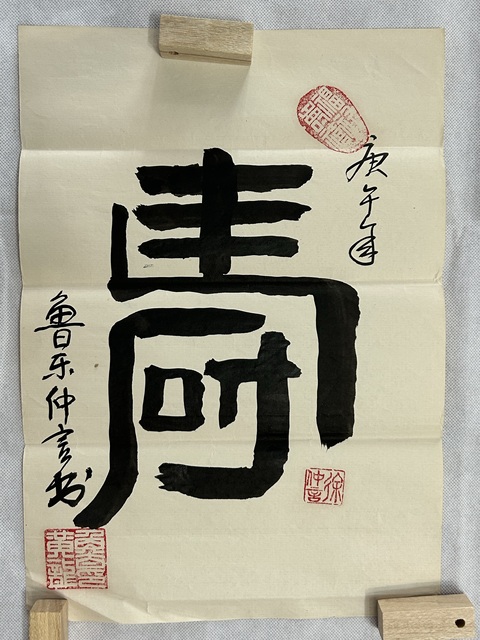 庚午年
壽
魯樂仲言书
徐仲言